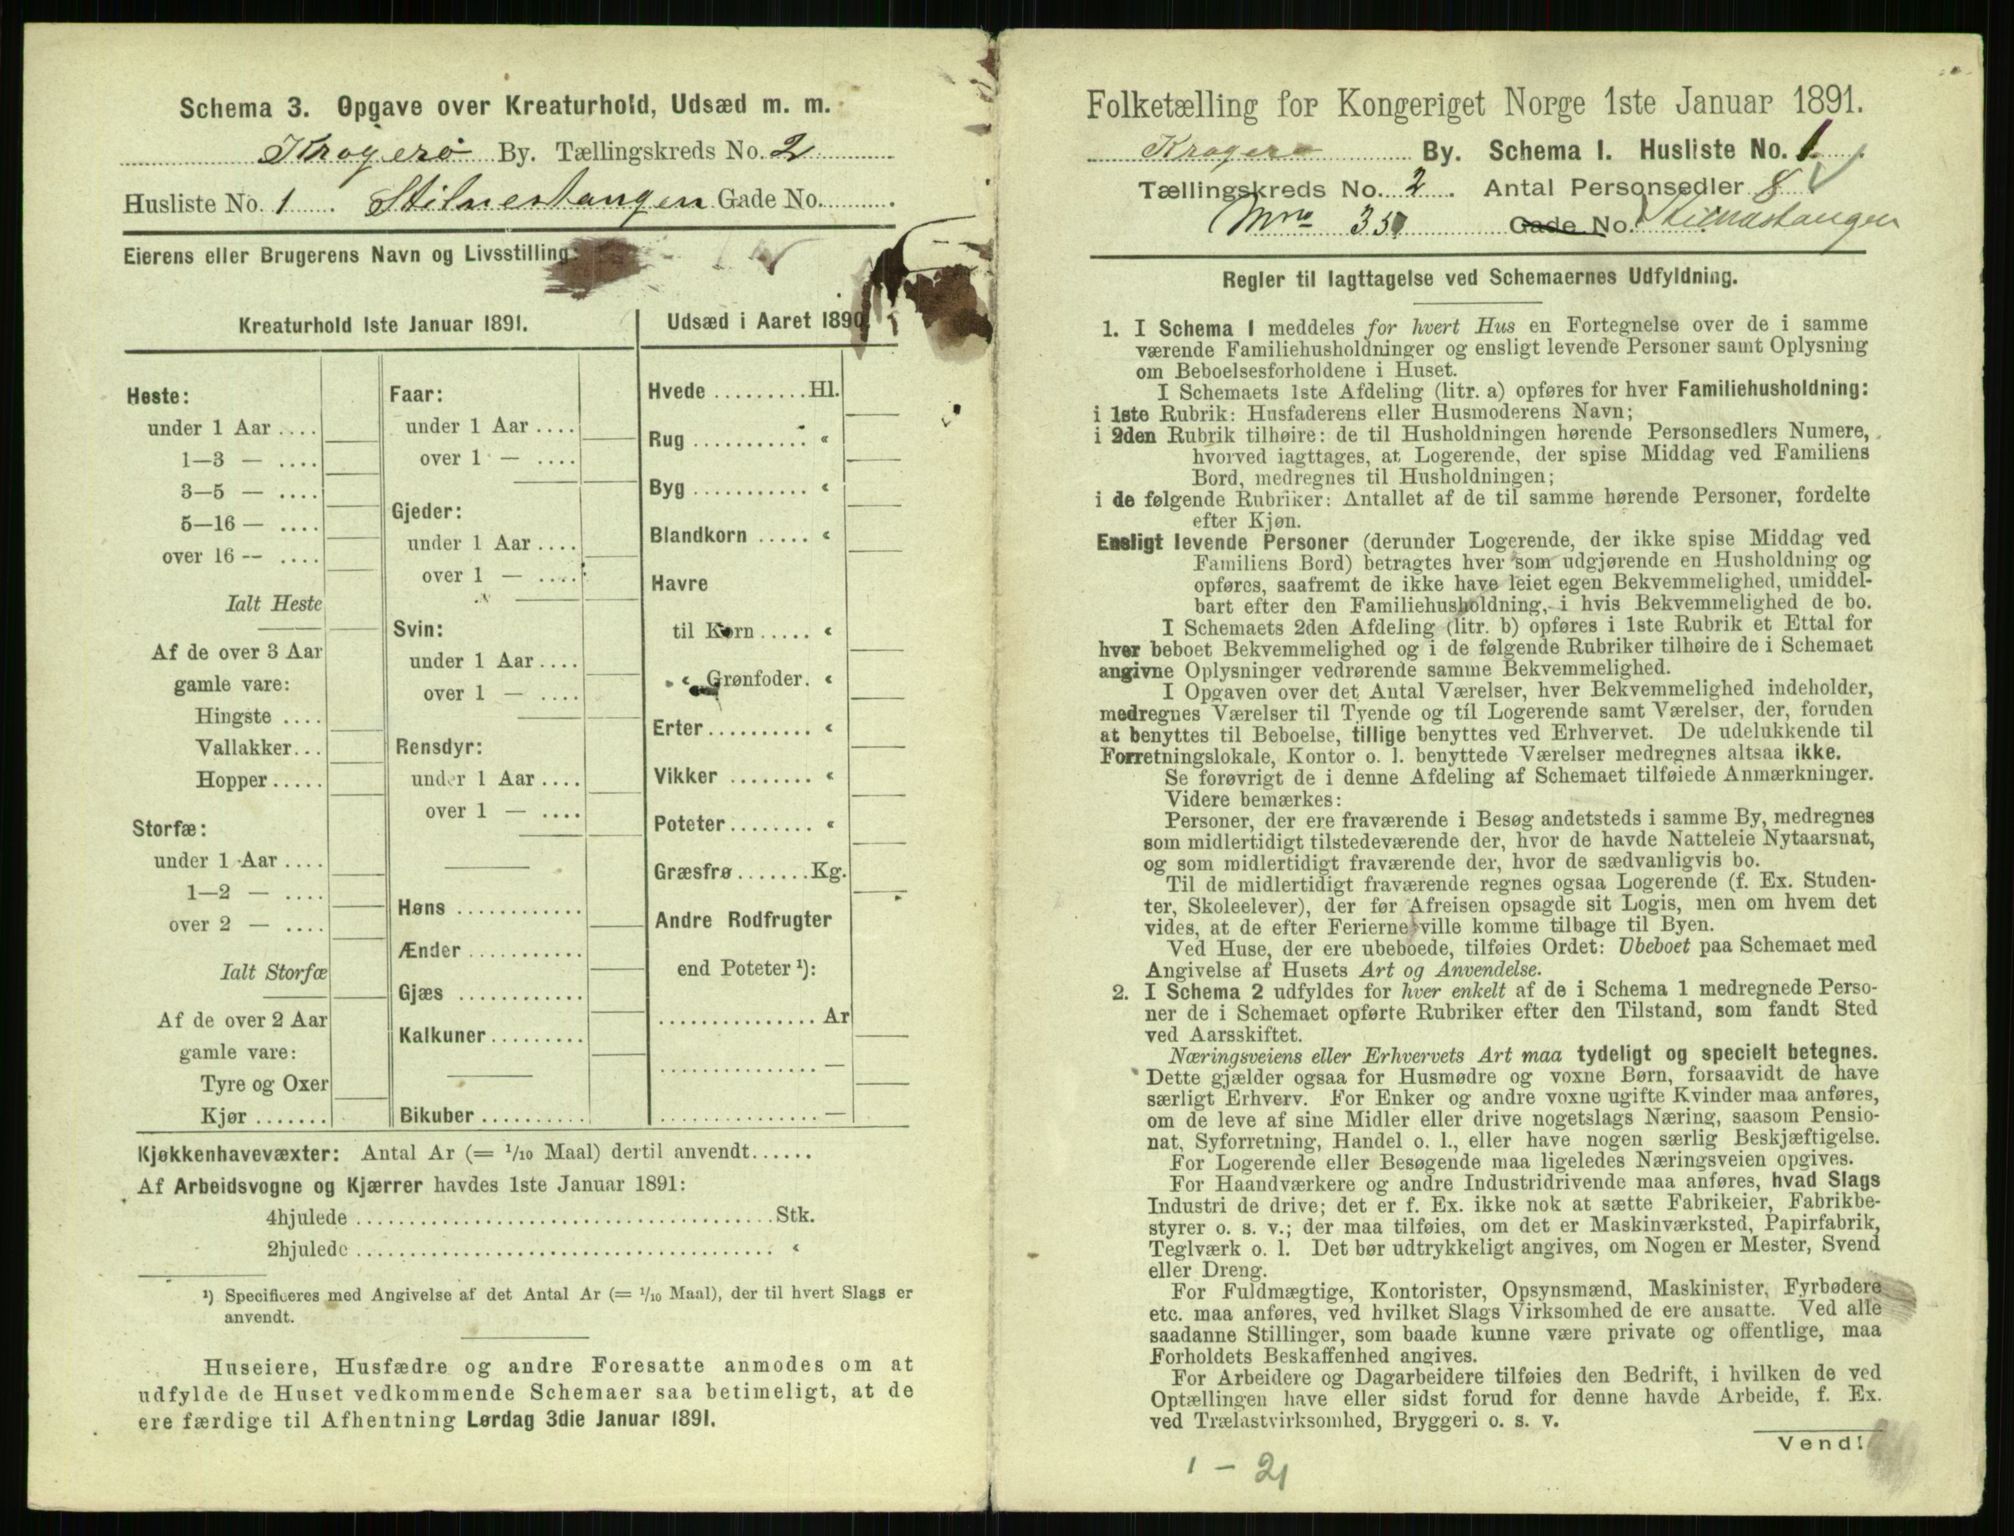 Schema 3. Opgave over Kreaturhold, Udsæd m. m.
Kragerø By. Tællingskreds No. 2
Husliste No. 1 . Stilnestangen Gade No. .
Eierens eller Brugerens Navn og Livsstilling:
Kreaturhold 1ste Januar 1891.
Heste:
under 1 Aar ....
1—3 — ....
3—5 — ....
5—16 — ....
over 16 — ....
Ialt Heste
Af de over 3 Aar
gamle vare:
Hingste ....
Vallakker...
Hopper.....
Storfæ:
under 1 Aar ....
1—2 — ....
over 2 — ....
Ialt Storfæ
Af de over 2 Aar
gamle vare:
Tyre og Oxer
Kjør.......
Faar:
under 1 Aar ....
over 1 — ....
Gjeder:
under 1 Aar ....
over 1 — ....
Svin:
under 1 Aar ....
over 1 — ....
Rensdyr:
under 1 Aar ....
over 1 — ....
Høns ............
Ænder ...........
Gjæs ............
Kalkuner.........
Bikuber ..........
Udsæd i Aaret 1890.
Hvede .........Hl.
Rug ........... «
Byg ........... «
Blandkorn ..... «
Havre
til Korn ..... «
« Grønfoder. «
Erter.......... «
Vikker ........ «
Poteter........ «
Græsfrø.......Kg.
Andre Rodfrugter
end Poteter ¹):
...............Ar
...............—
...............—
Kjøkkenhavevæxter: Antal Ar (= 1/10 Maal) dertil anvendt......
Af Arbeidsvogne og Kjærrer havdes 1ste Januar 1891:
4hjulede ........................................Stk.
2hjulede ........................................ «
¹) Specificeres med Angivelse af det Antal Ar (= 1/10 Maal), der til hvert Slags er
anvendt.
Huseiere, Husfædre og andre Foresatte anmodes om at
udfylde de Huset vedkommende Schemaer saa betimeligt, at de
ere færdige til Afhentning Lørdag 3die Januar 1891.
Folketælling for Kongeriget Norge 1ste Januar 1891.
Kragerø By. Schema I. Husliste No. 1
Tællingskreds No. 2 . Antal Personsedler 8
Mno 351 Gade No. Stilnestangen
Regler til Iagttagelse ved Schemaernes Udfyldning.
1. I Schema 1 meddeles for hvert Hus en Fortegnelse over de i samme
værende Familiehusholdninger og ensligt levende Personer samt Oplysning
om Beboelsesforholdene i Huset.
I Schemaets 1ste Afdeling (litr. a) opføres for hver Familiehusholdning:
i 1ste Rubrik: Husfaderens eller Husmoderens Navn;
i 2den Rubrik tilhøire: de til Husholdningen hørende Personsedlers Numere,
hvorved iagttages, at Logerende, der spise Middag ved Familiens
Bord, medregnes til Husholdningen;
i de følgende Rubriker: Antallet af de til samme hørende Personer, fordelte
efter Kjøn.
Ensligt levende Personer (derunder Logerende, der ikke spise Middag ved
Familiens Bord) betragtes hver som udgjørende en Husholdning og
opføres, saafremt de ikke have leiet egen Bekvemmelighed, umiddel-
bart efter den Familiehusholdning, i hvis Bekvemmelighed de bo.
I Schemaets 2den Afdeling (litr. b) opføres i 1ste Rubrik et Ettal for
hver beboet Bekvemmelighed og i de følgende Rubriker tilhøire de i Schemaet
angivne Oplysninger vedrørende samme Bekvemmelighed.
I Opgaven over det Antal Værelser, hver Bekvemmelighed indeholder,
medregnes Værelser til Tyende og til Logerende samt Værelser, der, foruden
at benyttes til Beboelse, tillige benyttes ved Erhvervet. De udelukkende til
Forretningslokale, Kontor o. l. benyttede Værelser medregnes altsaa ikke.
Se forøvrigt de i denne Afdeling af Schemaet tilføiede Anmærkninger.
Videre bemærkes:
Personer, der ere fraværende i Besøg andetsteds i samme By, medregnes
som midlertidigt tilstedeværende der, hvor de havde Natteleie Nytaarsnat,
og som midlertidigt fraværende der, hvor de sædvanligvis bo.
Til de midlertidigt fraværende regnes ogsaa Logerende (f. Ex. Studen-
ter, Skoleelever), der før Afreisen opsagde sit Logis, men om hvem det
vides, at de efter Ferierne ville komme tilbage til Byen.
Ved Huse, der ere ubeboede, tilføies Ordet: Ubeboet paa Schemaet med
Angivelse af Husets Art og Anvendelse.
2. I Schema 2 udfyldes for hver enkelt af de i Schema 1 medregnede Perso-
ner de i Schemaet opførte Rubriker efter den Tilstand, som fandt Sted
ved Aarsskiftet.
Næringsveiens eller Erhvervets Art maa tydeligt og specielt betegnes.
Dette gjælder ogsaa for Husmødre og voxne Børn, forsaavidt de have
særligt Erhverv. For Enker og andre voxne ugifte Kvinder maa anføres,
om de leve af sine Midler eller drive nogetslags Næring, saasom Pensio-
nat, Syforretning, Handel o. l., eller have nogen særlig Beskjæftigelse.
For Logerende eller Besøgende maa ligeledes Næringsveien opgives.
For Haandværkere og andre Industridrivende maa anføres, hvad Slags
Industri de drive; det er f. Ex. ikke nok at sætte Fabrikeier, Fabrikbe-
styrer o. s. v.; der maa tilføies, om det er Maskinværksted, Papirfabrik,
Teglværk o. l. Det bør udtrykkeligt angives, om Nogen er Mester, Svend
eller Dreng.
For Fuldmægtige, Kontorister, Opsynsmænd, Maskinister, Fyrbødere
etc. maa anføres, ved hvilket Slags Virksomhed de ere ansatte. Ved alle
saadanne Stillinger, som baade kunne være private og offentlige, maa
Forholdets Beskaffenhed angives.
For Arbeidere og Dagarbeidere tilføies den Bedrift, i hvilken de ved
Optællingen have eller sidst forud for denne havde Arbeide, f. Ex.
ved Trælastvirksomhed, Bryggeri o. s. v.
Vend!
1 – 21